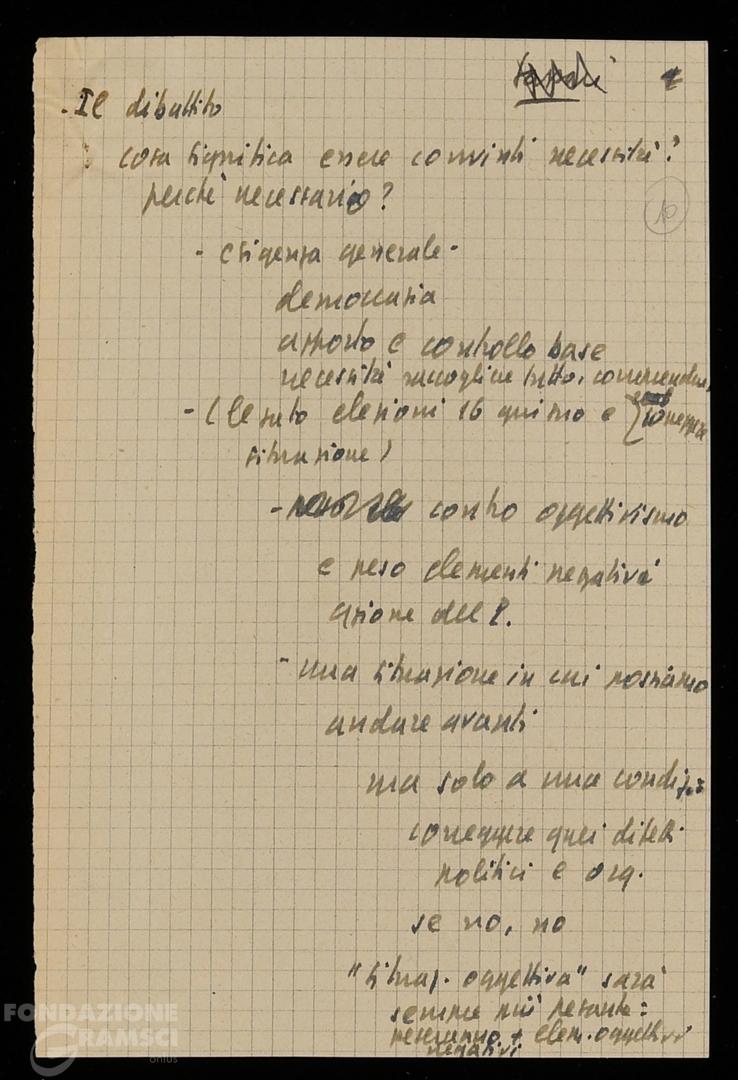 4
- Il dibattito
cosa significa essere convinti necessità?
perchè necessario?
10
- esigenza generale -
democrazia
apporto e controllo base
necessità raccogliere tutto,
- (le elezioni 16 giugno e
situazione)
- contro oggettivismo
e peso elementi negativi
azione del P.
- una situazione in cui possiamo
andare avanti
ma solo a una condiz.
correggere quei difetti
politici e org.
se no, no
"situaz. oggettiva" sarà
sempre più pesante:
peseranno + elem. oggettivi
negativi
FONDAZIONE
GRAMSCI
onlus